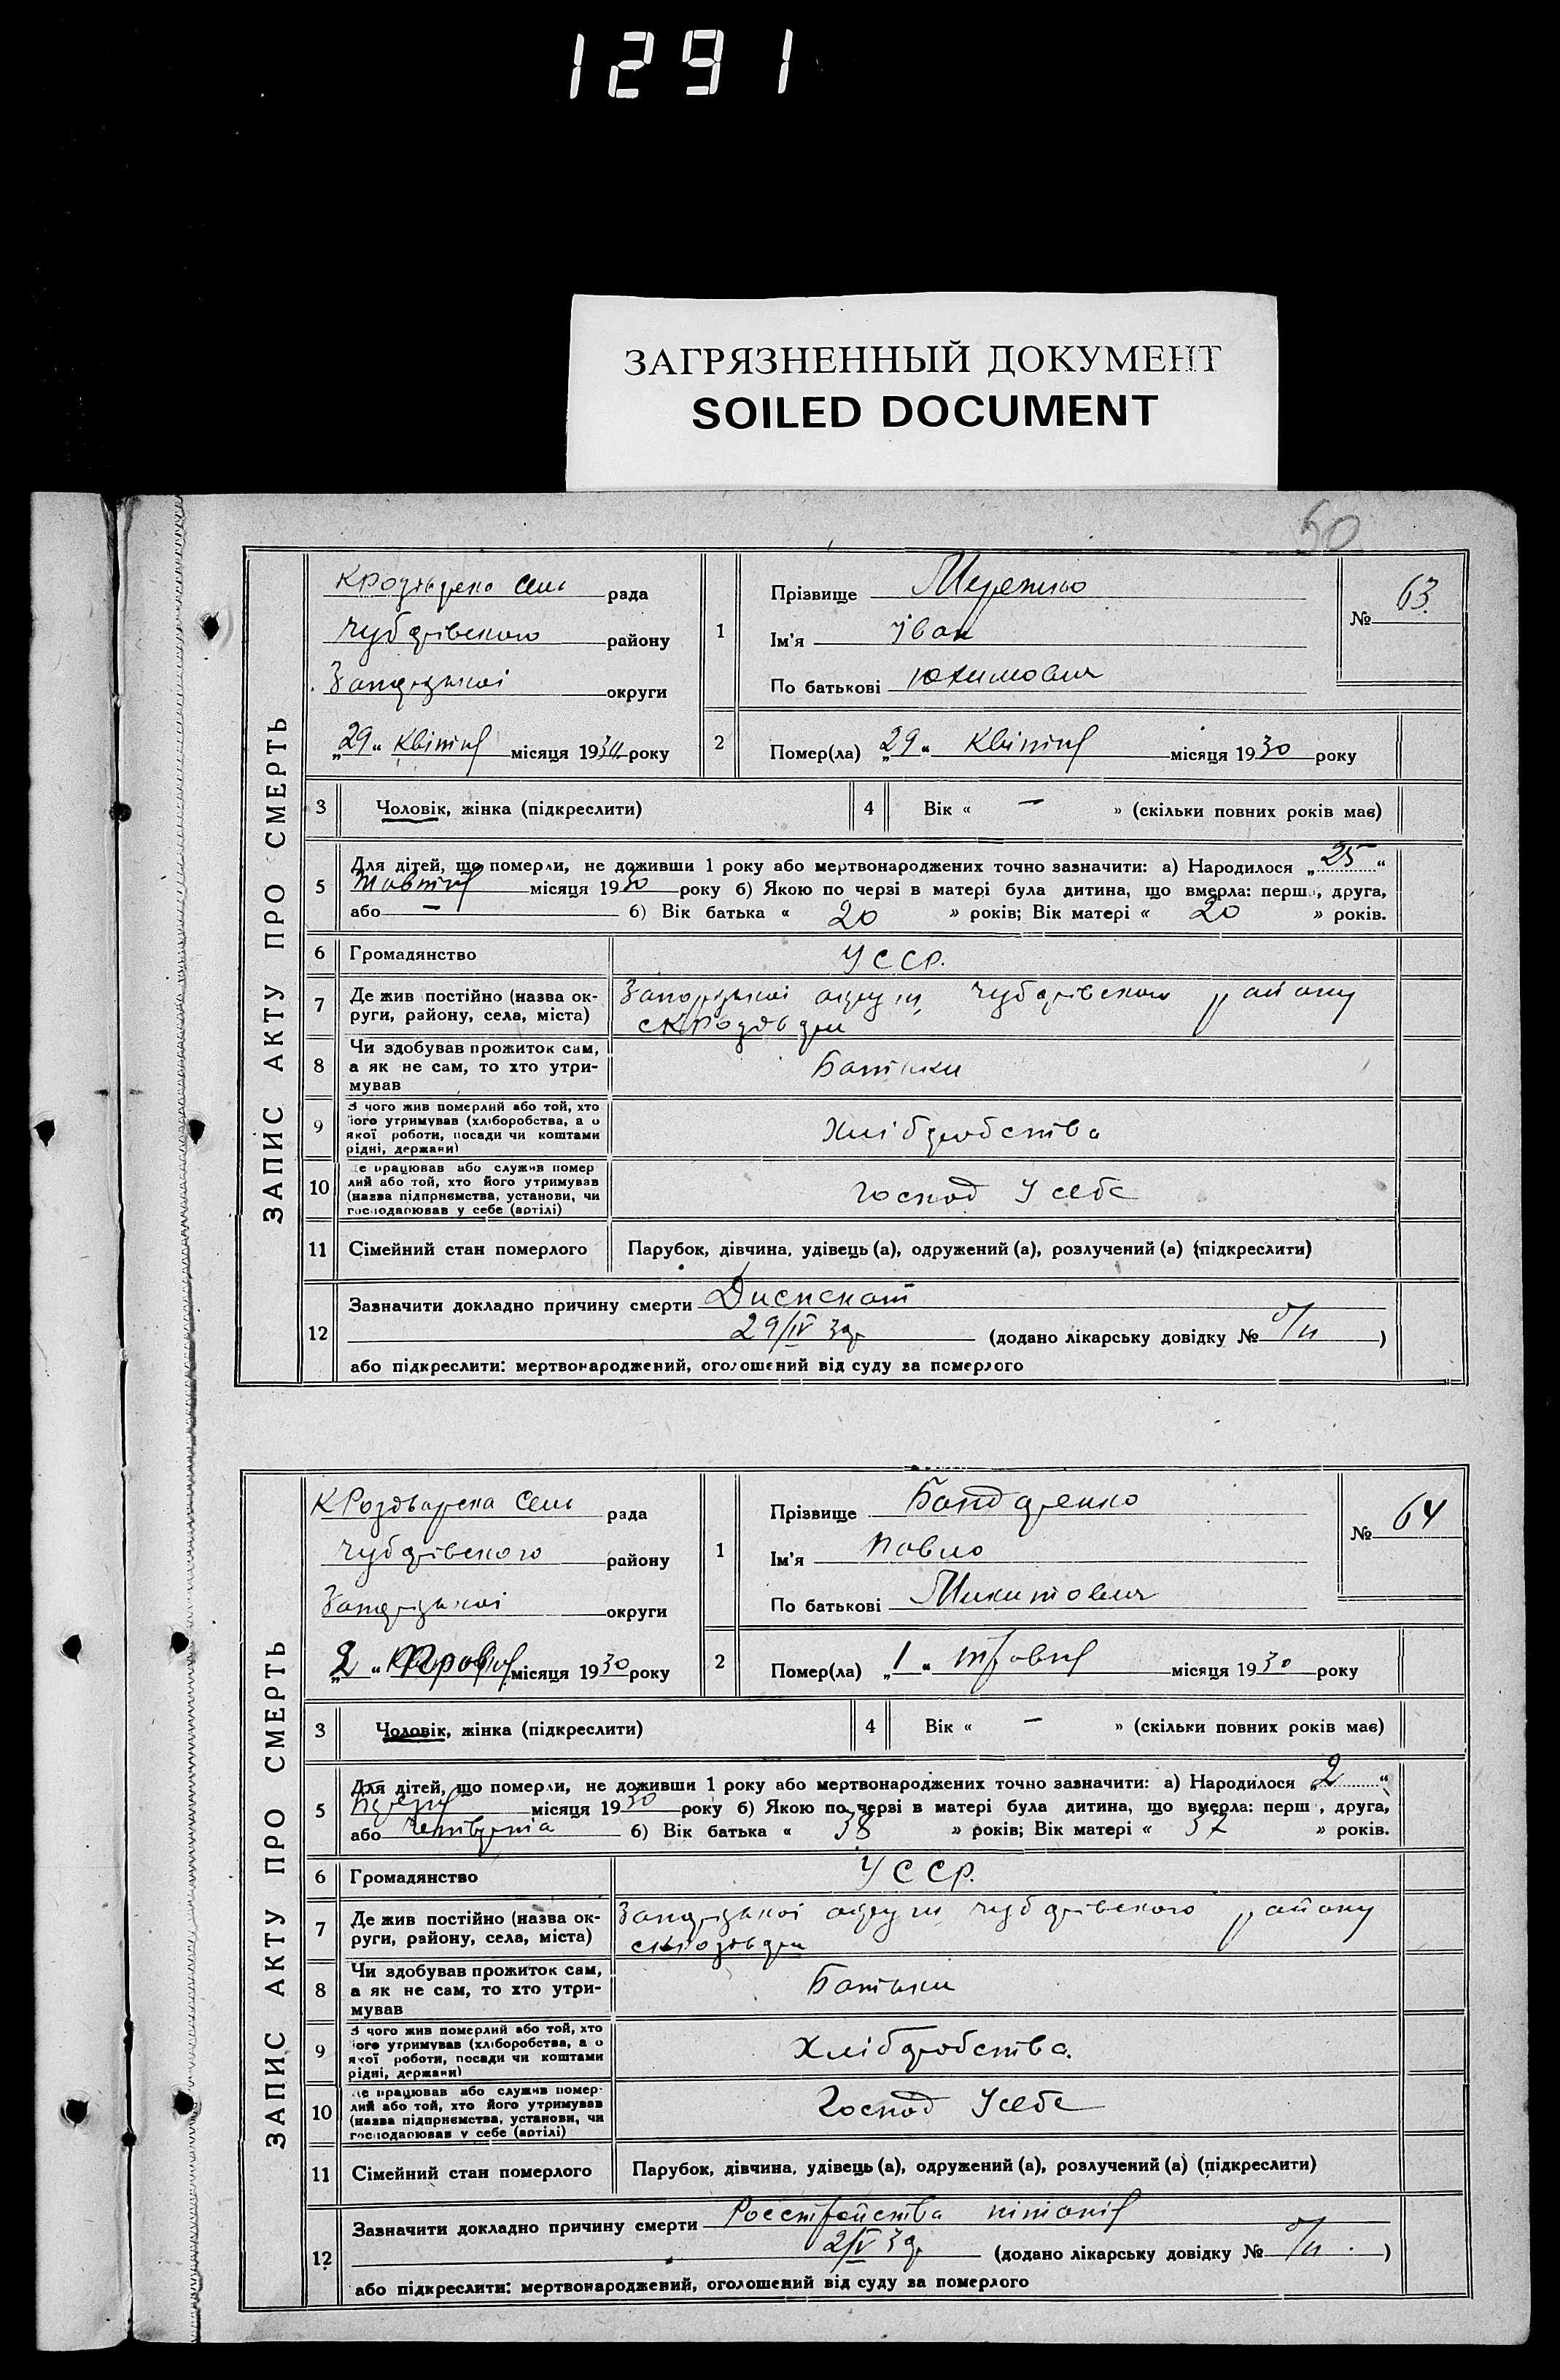 1291
ЗАГРЯЗНЕННЫЙ ДОКУМЕНТ
SOILED DOCUMENT
50
ЗАПИС АКТУ ПРО СМЕРТЬ
рада
Чубарівского району
Запорізької округи
„29“ Квітня місяця 1930 року
1
Прізвище Мережко
Ім'я Іван
По батькові Юхимович
№ 63.
2
Помер(ла) „29“ Квітня місяця 1930 року
3 Чоловік, жінка (підкреслити)
4 Вік « — » (скільки повних років має)
5 Для дітей, що померли, не доживши 1 року або мертвонароджених точно зазначити: а) Народилося „25“
місяця 1930 року б) Якою по черзі в матері була дитина, що вмерла: перша, друга,
або — б) Вік батька « 20 » років; Вік матері « 20 » років.
6 Громадянство УССР.
7 Де жив постійно (назва округи, району, села, міста)
Запорізької округи, Чубарівского району
8 Чи здобував прожиток сам, а як не сам, то хто утримував
Батьки
9 З чого жив померлий або той, хто його утримував (хліборобства, а о якої роботи, посади чи коштами рідні, держави)
Хліборобства
10 Де працював або служив померлий або той, хто його утримував (назва підприємства, установи, чи господарював у себе (артілі)
Господ У себе
11 Сімейний стан померлого
Парубок, дівчина, удівець (а), одружений (а), розлучений (а) (підкреслити)
12 Зазначити докладно причину смерти
29/IV 30р (додано лікарську довідку № )
або підкреслити: мертвонароджений, оголошений від суду за померлого
ЗАПИС АКТУ ПРО СМЕРТЬ
рада
Чубарівского району
Запорізької округи
„2“ місяця 1930 року
1
Прізвище Бондаренко
Ім'я Павло
По батькові Микитович
№ 64
2
Помер(ла) „1“ травня місяця 1930 року
3 Чоловік, жінка (підкреслити)
4 Вік « — » (скільки повних років має)
5 Для дітей, що померли, не доживши 1 року або мертвонароджених точно зазначити: а) Народилося „2“
місяця 1930 року б) Якою по черзі в матері була дитина, що вмерла: перш , друга,
або четверта б) Вік батька « 38 » років; Вік матері « 37 » років.
6 Громадянство УССР.
7 Де жив постійно (назва округи, району, села, міста)
Запорізької округи Чубарівского району
8 Чи здобував прожиток сам, а як не сам, то хто утримував
Батьки
9 З чого жив померлий або той, хто його утримував (хліборобства, а о якої роботи, посади чи коштами рідні, держави)
Хліборобства.
10 Де працював або служив померлий або той, хто його утримував (назва підприємства, установи, чи господарював у себе (артілі)
Господ У себе
11 Сімейний стан померлого
Парубок, дівчина, удівець (а), одружений (а), розлучений (а) (підкреслити)
12 Зазначити докладно причину смерти
2/V 30р (додано лікарську довідку № )
або підкреслити: мертвонароджений, оголошений від суду за померлого